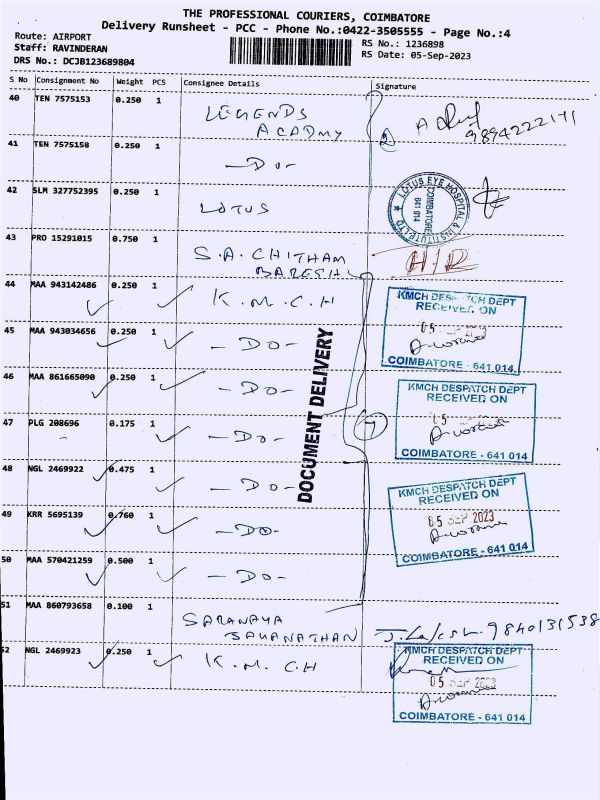 THE PROFESSIONAL COURIERS, COIMBATORE
Delivery Runsheet - PCC - Phone No.:0422-3505555 - Page No.:4
Route: AIRPORT
Staff: RAVINDERAN
DRS No.: DCJB123689804
RS No.: 1236898
RS Date: 05-Sep-2023
S No Consignment No Weight PCS Consignee Details Signature
40 TEN 7575153 0.250 1 LEGENDS ACADMY
9894222171
41 TEN 7575158 0.250 1 -DO-
42 SLM 327752395 0.250 1 LOTUS
LOTUS EYE HOSPITAL & INSTITUTE LTD
COIMBATORE
641 014
43 PRO 15291015 0.750 1 S.A. CHITHAM BARESH
44 MAA 943142486 0.250 1 K.M.C.H
KMCH DESPATCH DEPT
RECEIVED ON
05 SEP 2023
COIMBATORE - 641 014
45 MAA 943034656 0.250 1 -DO-
46 MAA 861665090 0.250 1 -DO-
KMCH DESPATCH DEPT
RECEIVED ON
COIMBATORE - 641 014
47 PLG 208696 0.175 1 -DO-
DOCUMENT DELIVERY
7
48 NGL 2469922 0.475 1 -DO-
KMCH DESPATCH DEPT
RECEIVED ON
05 SEP 2023
COIMBATORE - 641 014
49 KRR 5695139 0.760 1 -DO-
50 MAA 570421259 0.500 1 -DO-
51 MAA 860793658 0.100 1 SARANAYA
9840131538
52 NGL 2469923 0.250 1 K.M.C.H
KMCH DESPATCH DEPT
RECEIVED ON
05 SEP 2023
COIMBATORE - 641 014